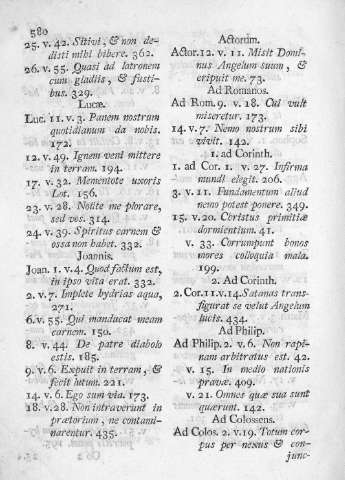 580
25. v. 42. Sitivi, & non dedistis
disti mihi bibere. 362.
26. v. 55. Quasi ad latronem
cum gladiis, & fustibus
bus. 329.
Lucæ.
Luc. 11. v. 3. Panem nostrum
quotidianum da nobis.
172.
12. v. 49. Ignem veni mittere
in terram. 194.
17. v. 32. Mementote uxoris
Lot. 156.
23. v. 28. Nolite me plorare,
sed vos. 314.
24. v. 39. Spiritus carnem &
ossa non habet. 332.
Joannis.
Joan. 1. v. 4. Quod factum est,
in ipso vita erat. 332.
2. v. 7. Implete hydrias aqua,
271.
6. v. 55. Qui manducat meam
carnem. 150.
8. v. 44. De patre diabolo
estis. 185.
9. v. 6. Expuit in terram, &
fecit lutum. 221.
14. v. 6. Ego sum via. 173.
18. v. 28. Non intraverunt in
prætorium, ne contaminarentur
narentur. 435.
Actorum.
Actor. 12. v. 11. Misit Dominus
nus Angelum suum, &
eripuit me. 73.
Ad Romanos.
Ad Rom. 9. v. 18. Cui vult
miseretur. 173.
14. v. 7. Nemo nostrum sibi
vivit. 142.
1. ad Corinth.
1. ad Cor. 1. v. 27. Infirma
mundi elegit. 206.
3. v. 11. Fundamentum aliud
nemo potest ponere. 349.
15. v. 20. Christus primitiæ
dormientium. 41.
v. 33. Corrumpunt bonos
mores colloquia mala.
199.
2. Ad Corinth.
2. Cor. 11. v. 14. Satanas transfigurat
figurat se velut Angelum
lucis. 434.
Ad Philip.
Ad Philip. 2. v. 6. Non rapinam
nam arbitratus est. 42.
v. 15. In medio nationis
pravæ. 409.
v. 21. Omnes quæ sua sunt
quærunt. 142.
Ad Colossens.
Ad Colos. 2. v. 19. Totum corpus
pus per nexus & con-
junc-